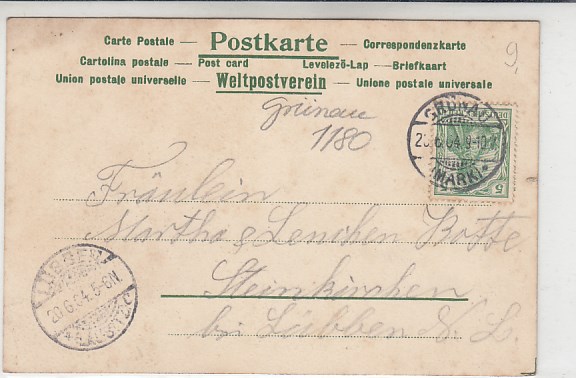 Carte Postale — Postkarte — Correspondenzkarte
Cartolina postale — Post card — Levelező-Lap — Briefkaart
Union postale universelle — Weltpostverein — Unione postale universale
9.
Grünau
1180
GRÜNAU
20.6.04.9-10V.
(MARK)*
5
Fräulein
Martha & Lenchen Botte
Steinkirchen
bei Lübben N. L.
LÜBBEN
20.6.04.5-6N.